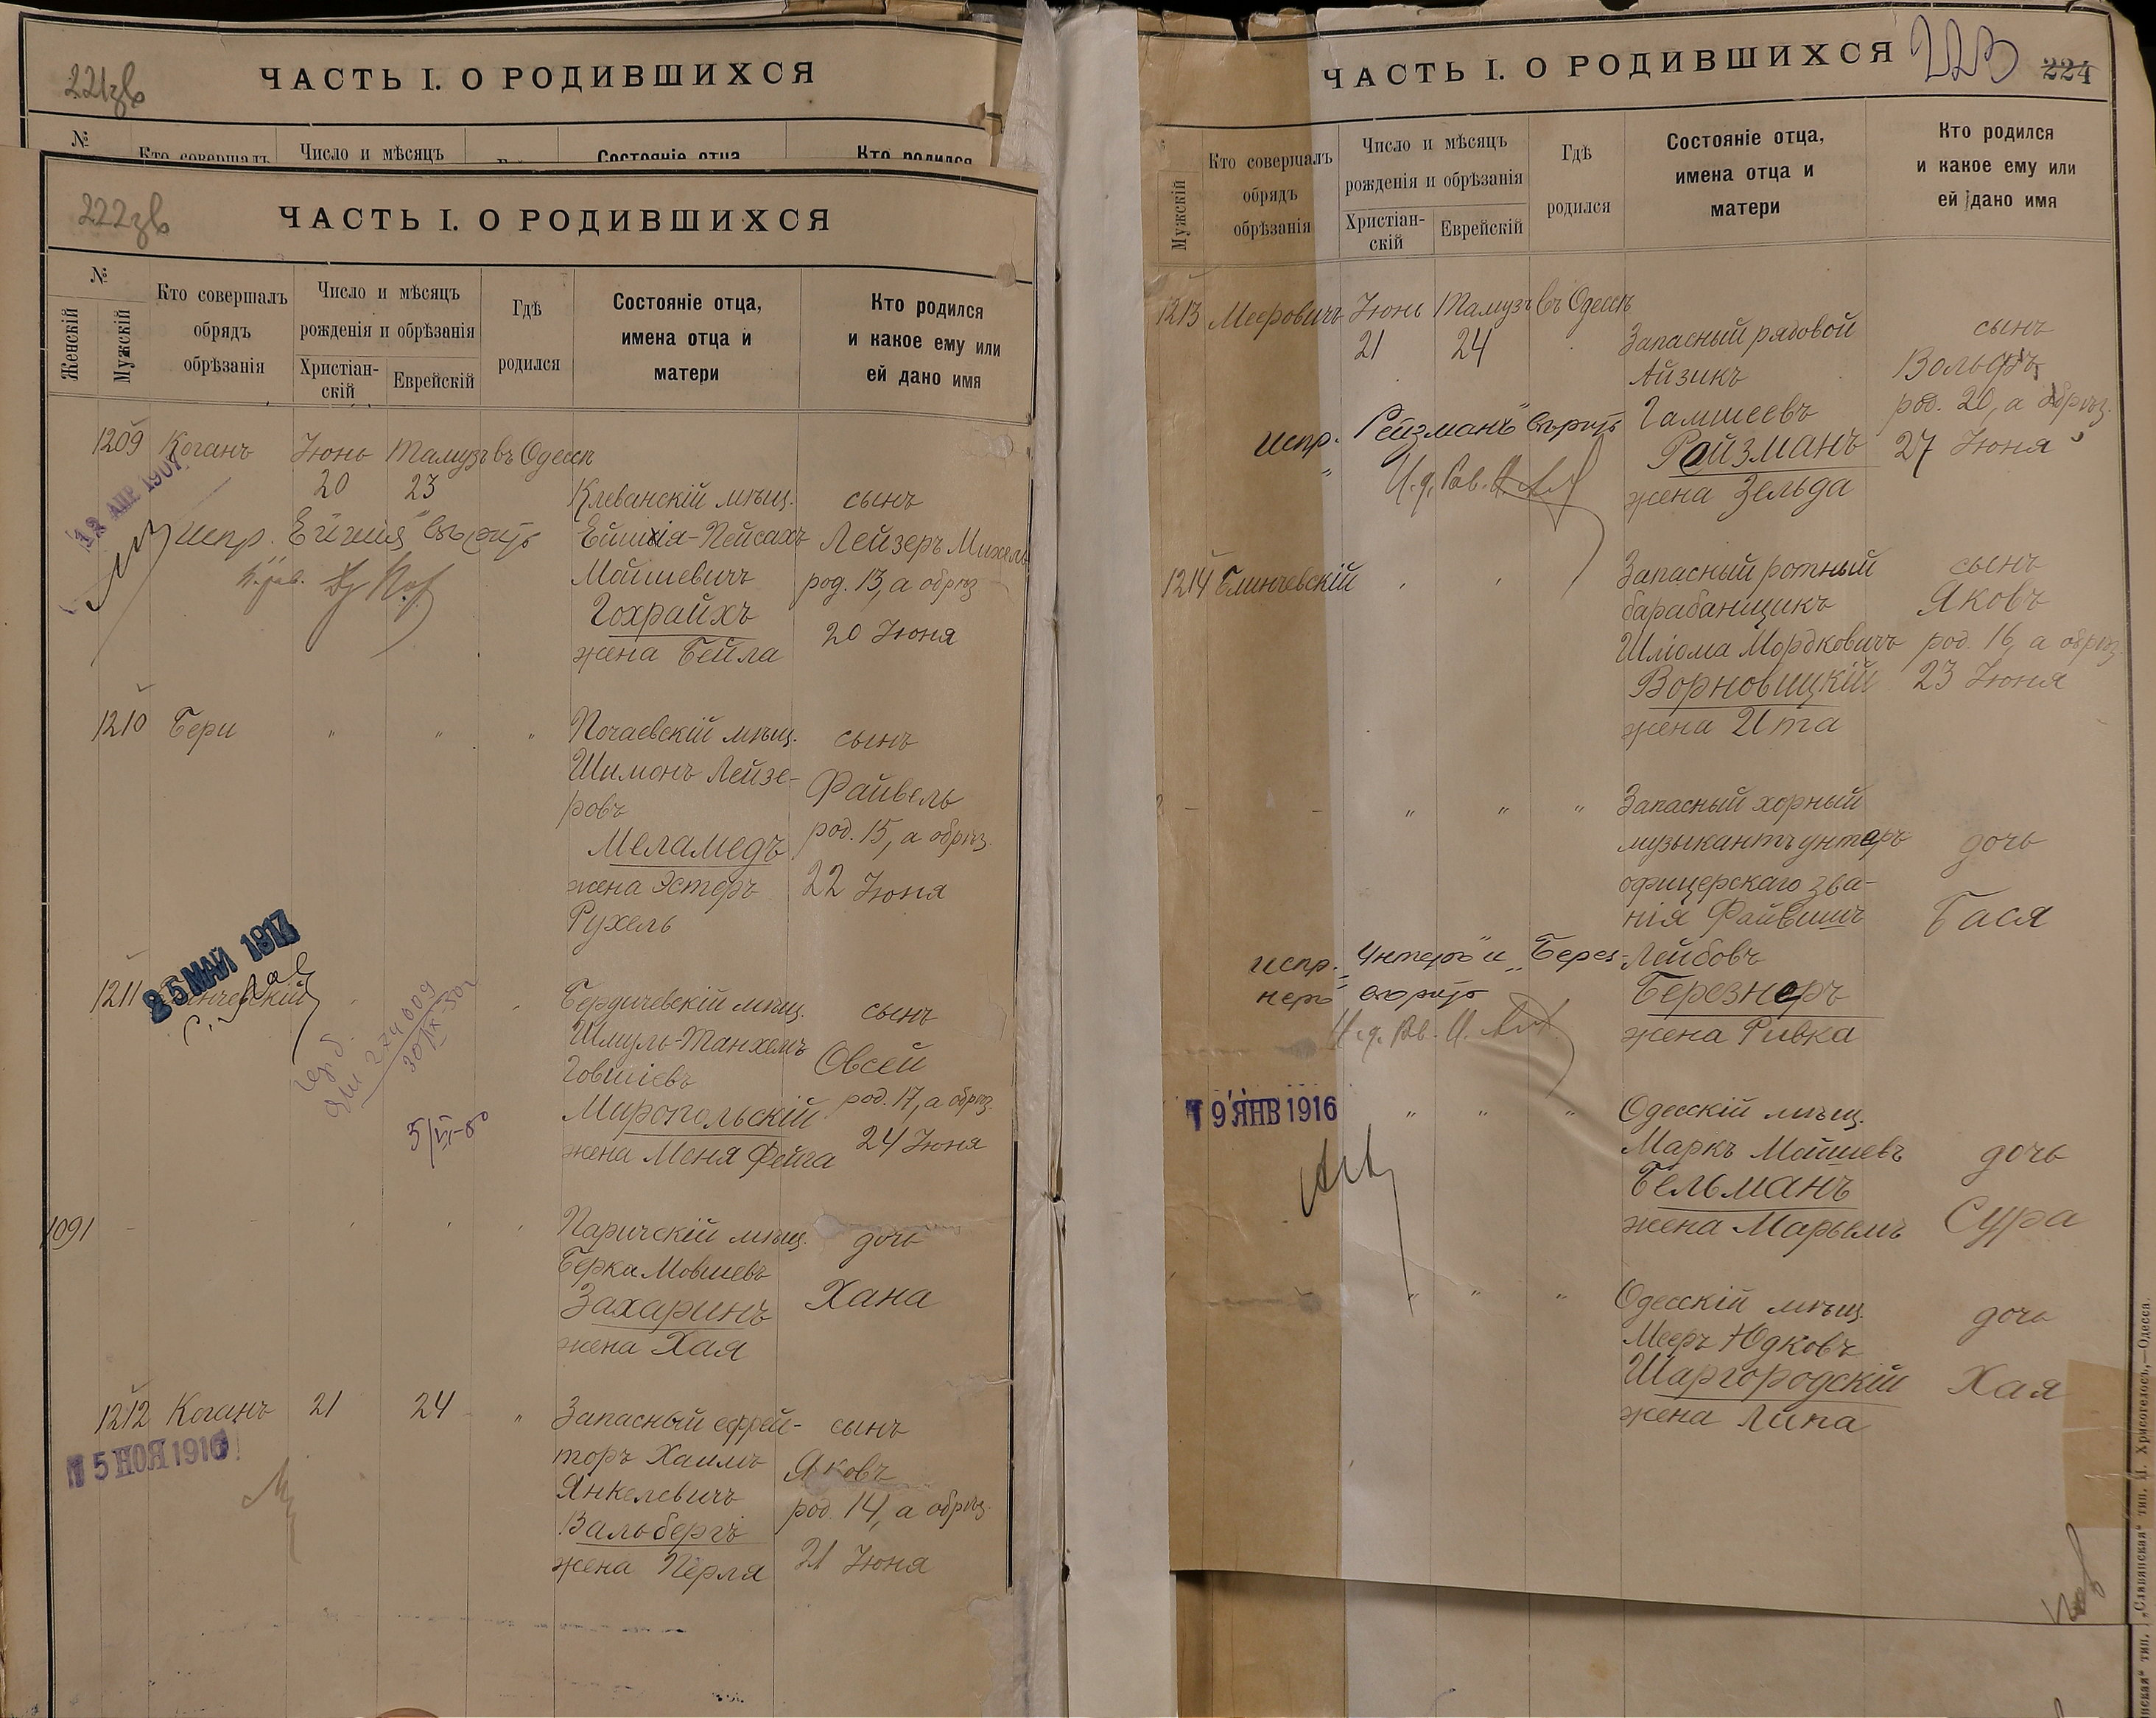 221зв
ЧАСТЬ I. О РОДИВШИХСЯ
№
Кто совершалъ
Число и мѣсяцъ
Состояніе отца
Кто родился
222зв
ЧАСТЬ I. О РОДИВШИХСЯ
№
Женскій
Мужскій
Кто совершалъ
обрядъ
обрѣзанія
Число и мѣсяцъ
рожденія и обрѣзанія
Христіан-
скій
Еврейскій
Гдѣ
родился
Состояніе отца,
имена отца и
матери
Кто родился
и какое ему или
ей дано имя
1209 Коганъ Іюнь Тамузъ въ Одессѣ
20 23
Клеванскій мѣщ. сынъ
Лейзеръ Михель
Мошевичъ род. 13, а обрѣз.
Гохрайхъ 20 Іюня
жена Бейла
12 АПР 1907
испр.
1210 Бери " " " Почаевскій мѣщ. сынъ
Шимонъ Лейзе-
ровъ Файвель
Меламедъ род. 15, а обрѣз.
жена Эстеръ 22 Іюня
Рухель
25 МАЙ 1917
1211 Бердичевскій мѣщ. сынъ
Шмуль-Танхемъ Овсей
Говшіевъ
Миропольскій род. 17, а обрѣз.
жена Меня Фейга 24 Іюня
5/VI-50
1091 Паричскій мѣщ. дочь
Берка Мовшевъ
Захаринъ Хана
жена Хая
1212 Коганъ 21 24 " Запасный ефрей- сынъ
торъ Хаимъ Яковъ
Янкелевичъ род. 14, а обрѣз.
Вальбергъ 21 Іюня
жена Перля
5 НОЯ 1916
ЧАСТЬ I. О РОДИВШИХСЯ 223 224
Мужскій
Кто совершалъ
обрядъ
обрѣзанія
Число и мѣсяцъ
рожденія и обрѣзанія
Христіан-
скій
Еврейскій
Гдѣ
родился
Состояніе отца,
имена отца и
матери
Кто родился
и какое ему или
ей дано имя
1213 Мееровичъ Іюнь Тамузъ въ Одессѣ
21 24
Запасный рядовой сынъ
Айзикъ Вольфъ
Гамшеевъ род. 20, а обрѣз.
Ройзманъ 27 Іюня
жена Зельда
испр. "Рейзманъ" вѣрить
1214 Блинчевскій Запасный ротный сынъ
барабанщикъ Яковъ
Шліома Мордковичъ род. 16, а обрѣз.
Ворновицкій 23 Іюня
жена Ита
" " " Запасный хорный
музыкантъ унтеръ дочь
офицерскаго зва-
нія Файвишъ Бася
Лейбовъ
Березнеръ
жена Ривка
испр. "Унтеръ" и "Берез-
неръ" вѣрить
19 ЯНВ 1916
" " " Одесскій мѣщ.
Маркъ Мошевъ дочь
Бельманъ
жена Марьемъ Сура
" " " Одесскій мѣщ. дочь
Мееръ Юдковъ
Шаргородскій Хая
жена Липа
„Славянская“ тип. Н. Хрисогелосъ,—Одесса.